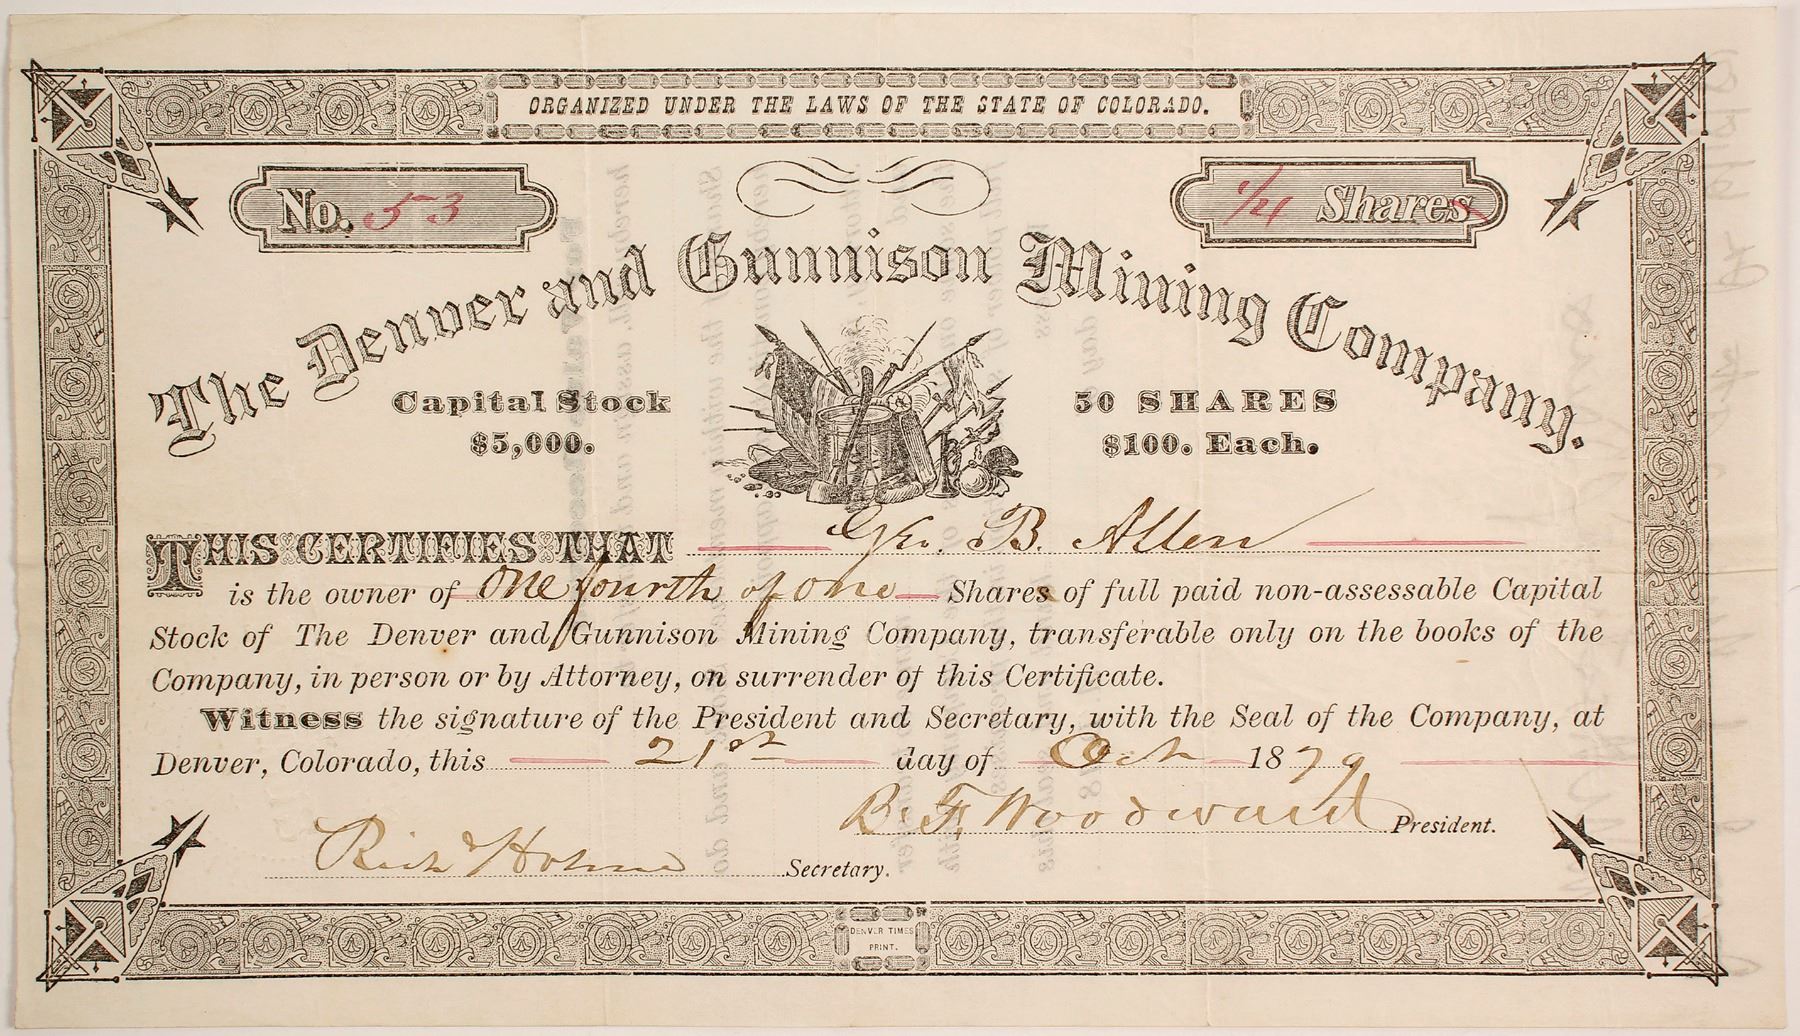 ORGANIZED UNDER THE LAWS OF THE STATE OF COLORADO.
No. 53
1/4 Shares
The Denver and Gunnison Mining Company.
Capital Stock
$5,000.
50 SHARES
$100. Each.
THIS CERTIFIES THAT Geo. B. Allen
is the owner of One fourth of one Shares of full paid non-assessable Capital
Stock of The Denver and Gunnison Mining Company, transferable only on the books of the
Company, in person or by Attorney, on surrender of this Certificate.
Witness the signature of the President and Secretary, with the Seal of the Company, at
Denver, Colorado, this 21st day of Oct 1879
B. F. Woodward President.
Richd Holme Secretary.
DENVER TIMES
PRINT.